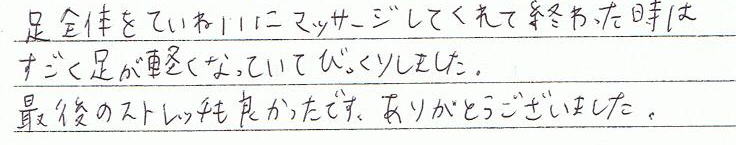 足全体をていねいにマッサージしてくれて終わった時は
すごく足が軽くなっていてびっくりしました。
最後のストレッチも良かったです、ありがとうございました。